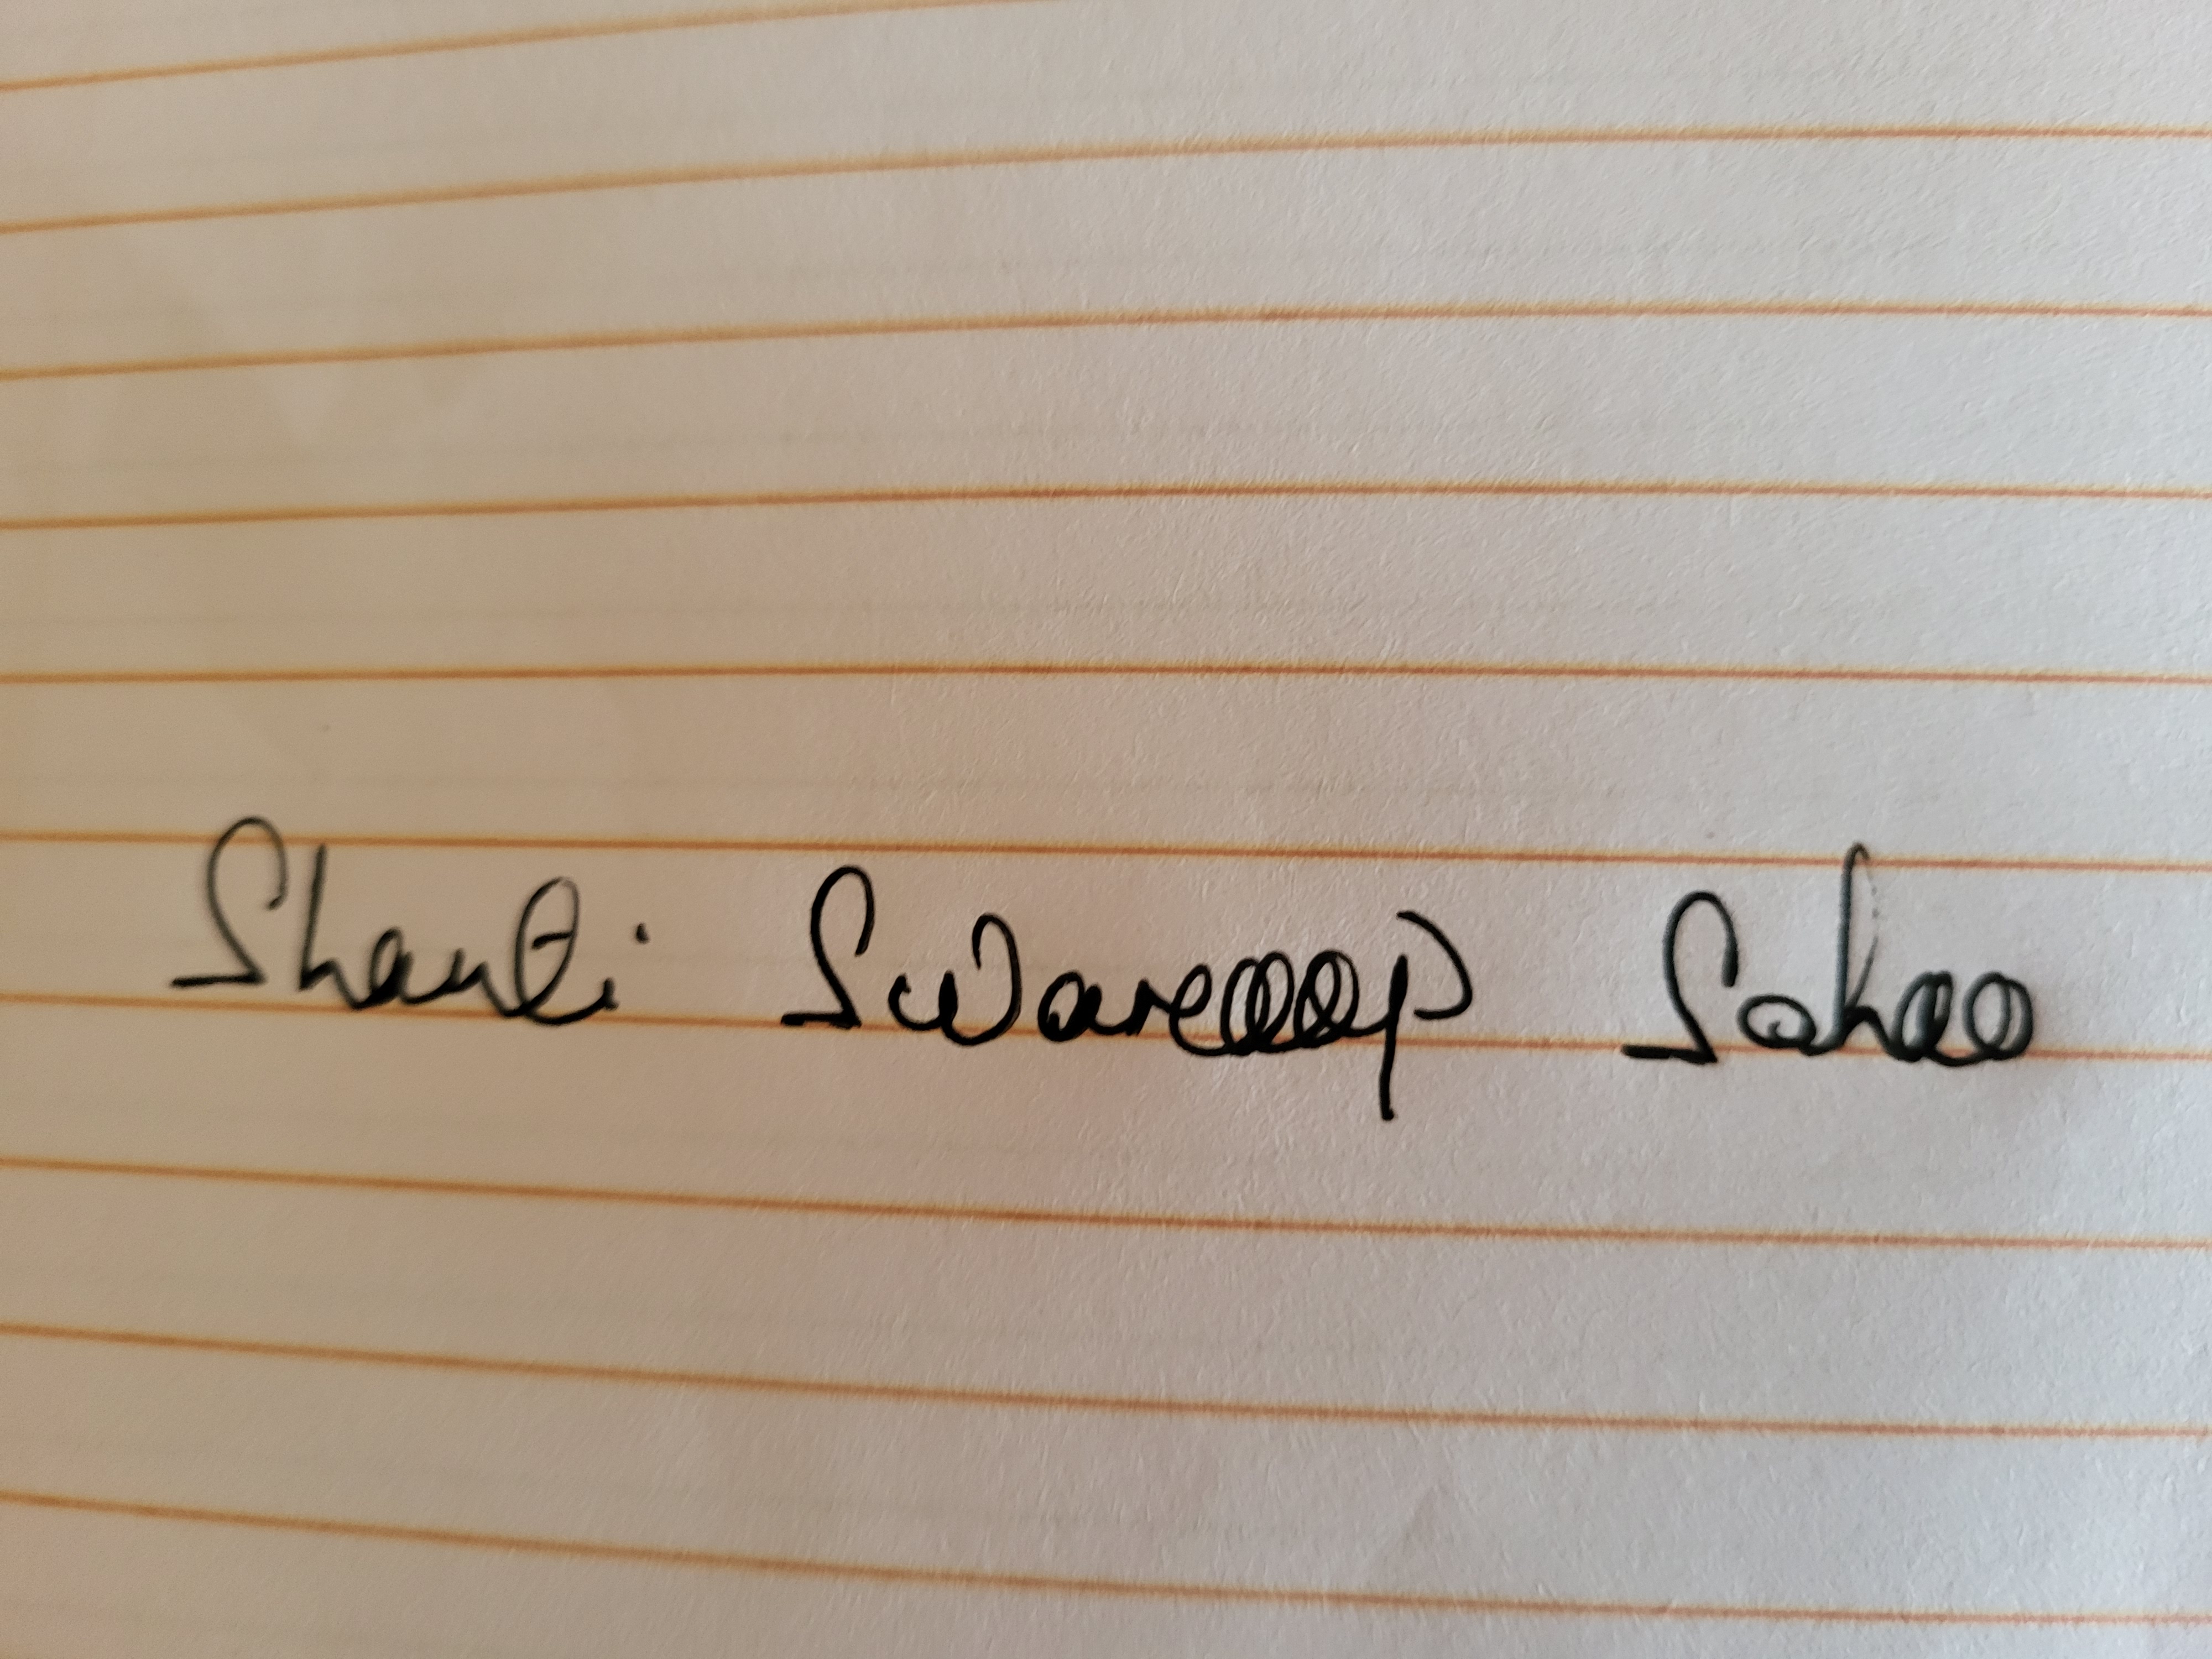 Shanti Swaroop Sahoo